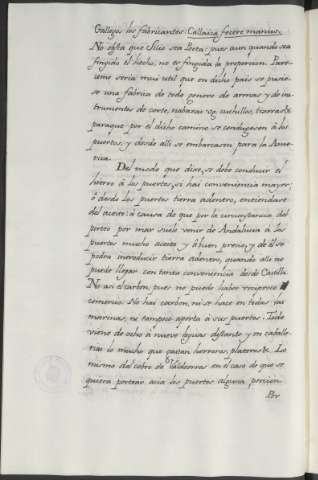 Gallegos los fabricantes: Callaica fecere manus.
No obsta que Silio sea Poeta: pues aun quando sea
fingido el hecho, no es fingida la proporcion. Pare-
ceme seria mui util que en dicho pais se pusie-
se una fabrica de todo genero de armas y de ins-
trumentos de corte, nabaxas v.g. cuchillos, tixeras &c.
paraque por el dicho camino se conduxesen á los
puertos, y desde alli se embarcasen para la Ame-
rica.
Del modo que dixe, se debe conducir el
hierro á los puertos, si hai conveniencia mayor,
ó desde los puertos tierra adentro, entiendase
del aceite: á causa de que por la circunstancia del
porte por mar suele venir de Andalucia á los
puertos mucho aceite y á buen precio, y de él se
podra introducir tierra adentro, quando alli no
puede llegar con tanta conveniencia desde Castilla.
No asi el carbon, pues no puede haber reciproco
comercio. No hai carbon, ni se hace en todas las
marinas, ni tampoco aporta á sus puertos. Todo
viene de ocho á nueve leguas distante y en caballe-
rias lo mucho que gastan herreros, plateros &c. Lo
mismo del cobre de Valdeorras en el caso de que se
quiera portear acia los puertos alguna porcion.
Por